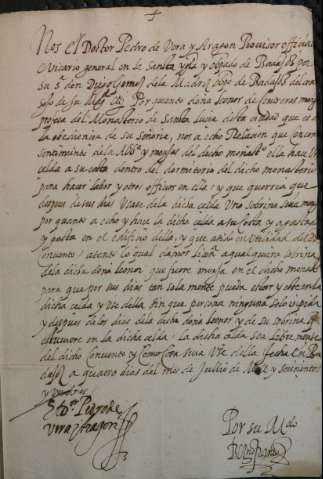 Nos El Doctor Pedro de Vera y Aragon Provisor official
E vicario general en la Sancta ygl.ª y obpado de Badajoz por
su s.ª don Diego Gomez de la Madriz obpo de Badajoz del con
sejo de su Mag.d &. Por quanto doña leonor de
profesa del Monasterio de Sancta lucia desta ciudad que es a
la obediencia de su Señoria, nos a echo Relacion que con con
sentimiento de la Abb.ª y monjas del dicho monast.º ella haze Una
celda a su costa dentro del dormitorio del dicho monasterio
para hazer labor y otros officios en ella / y que querria que
despues de sus dias Usase de la dicha celda Una Sobrina suya monja
por quanto a echo y haze la dicha celda a su costa y a gastado
y gasta en el edificio della, y que es en Utilidad del D
Convento / atento lo qual damos licencia a qualquiera Sobrina
de la dicha doña leonor que fuere monja en el dicho monast.º
para que por sus dias tan solamente pueda estar y estar en la
dicha celda y Use della sin que persona ninguna se lo ympida
y despues de los dias de la dicha doña leonor y de su sobrina
estuviere en la dicha celda / la dicha celda sea libremente
del dicho Convento y como cosa suya Use della fecha En Ba
dajoz a quatro dias del mes de Julio de Mill y seiscientos
y
El do. Pedro de
Vera y Aragon
Por su M.do